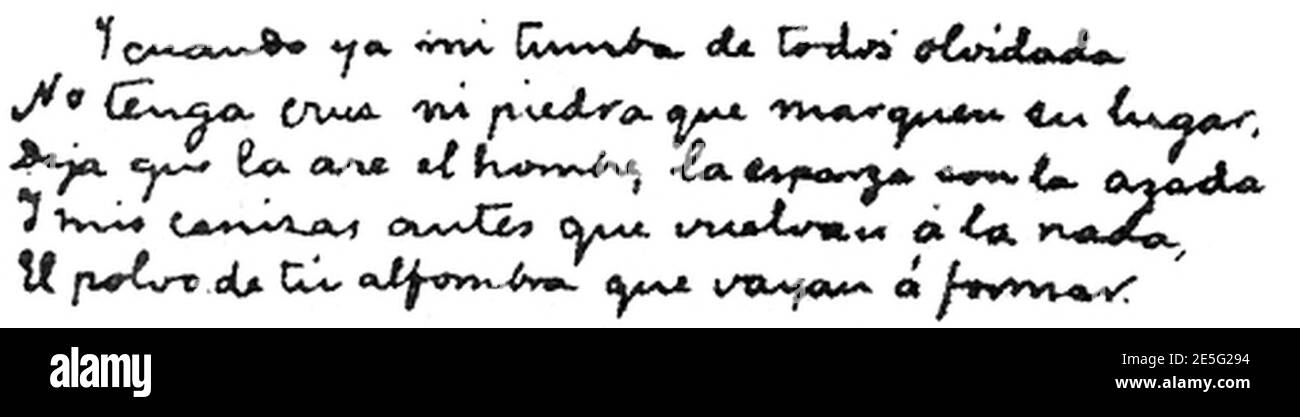 Y cuando ya mi tumba de todos olvidada
No tenga crus ni piedra que marquen su lugar,
Deja que la are el hombre, la esparza con la azada
Y mis cenizas antes que vuelvan á la nada,
El polvo de tu alfombra que vayan á formar.
a
a
alamy
Image ID: 2E5G294
www.alamy.com